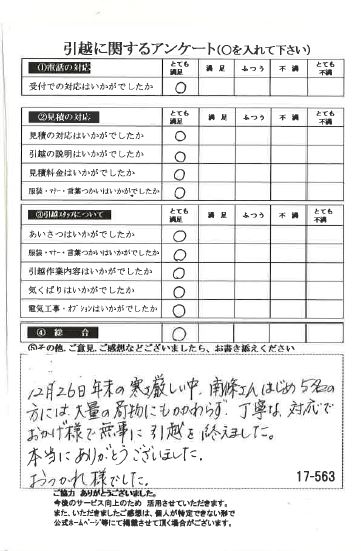 引越に関するアンケート(○を入れて下さい)
①電話の対応 とても満足 満足 ふつう 不満 とても不満
受付での対応はいかがでしたか ○
②見積の対応 とても満足 満足 ふつう 不満 とても不満
見積の対応はいかがでしたか ○
引越の説明はいかがでしたか ○
見積料金はいかがでしたか ○
服装・マナー・言葉つかいはいかがでしたか ○
③引越スタッフについて とても満足 満足 ふつう 不満 とても不満
あいさつはいかがでしたか ○
服装・マナー・言葉つかいはいかがでしたか ○
引越作業内容はいかがでしたか ○
気くばりはいかがでしたか ○
電気工事・オプションはいかがでしたか ○
④総合 ○
⑤その他、ご意見、ご感想などございましたら、お書き添えください
12月26日年末の寒さ厳しい中、南條さんはじめ5名の
方には大量の荷物にもかかわらず、丁寧な対応で
おかげ様で無事に引越を終えました。
本当にありがとうございました。
おつかれ様でした。
17-563
ご協力 ありがとうございました。
今後のサービス向上のため 活用させていただきます。
また、いただきましたご感想は、個人が特定できない形で
公式ホームページ等にて掲載させて頂く場合がございます。